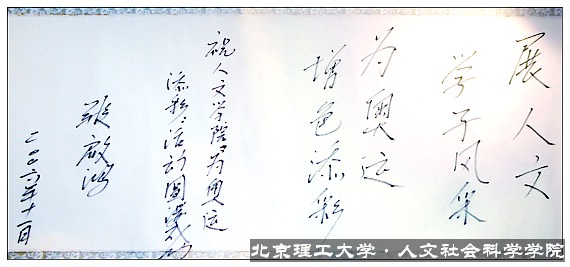 展人文
学子风采
为奥运
增色添彩
祝人文学院"为奥运
添彩"活动圆满成功
二〇〇六年十一月
北京理工大学·人文社会科学学院